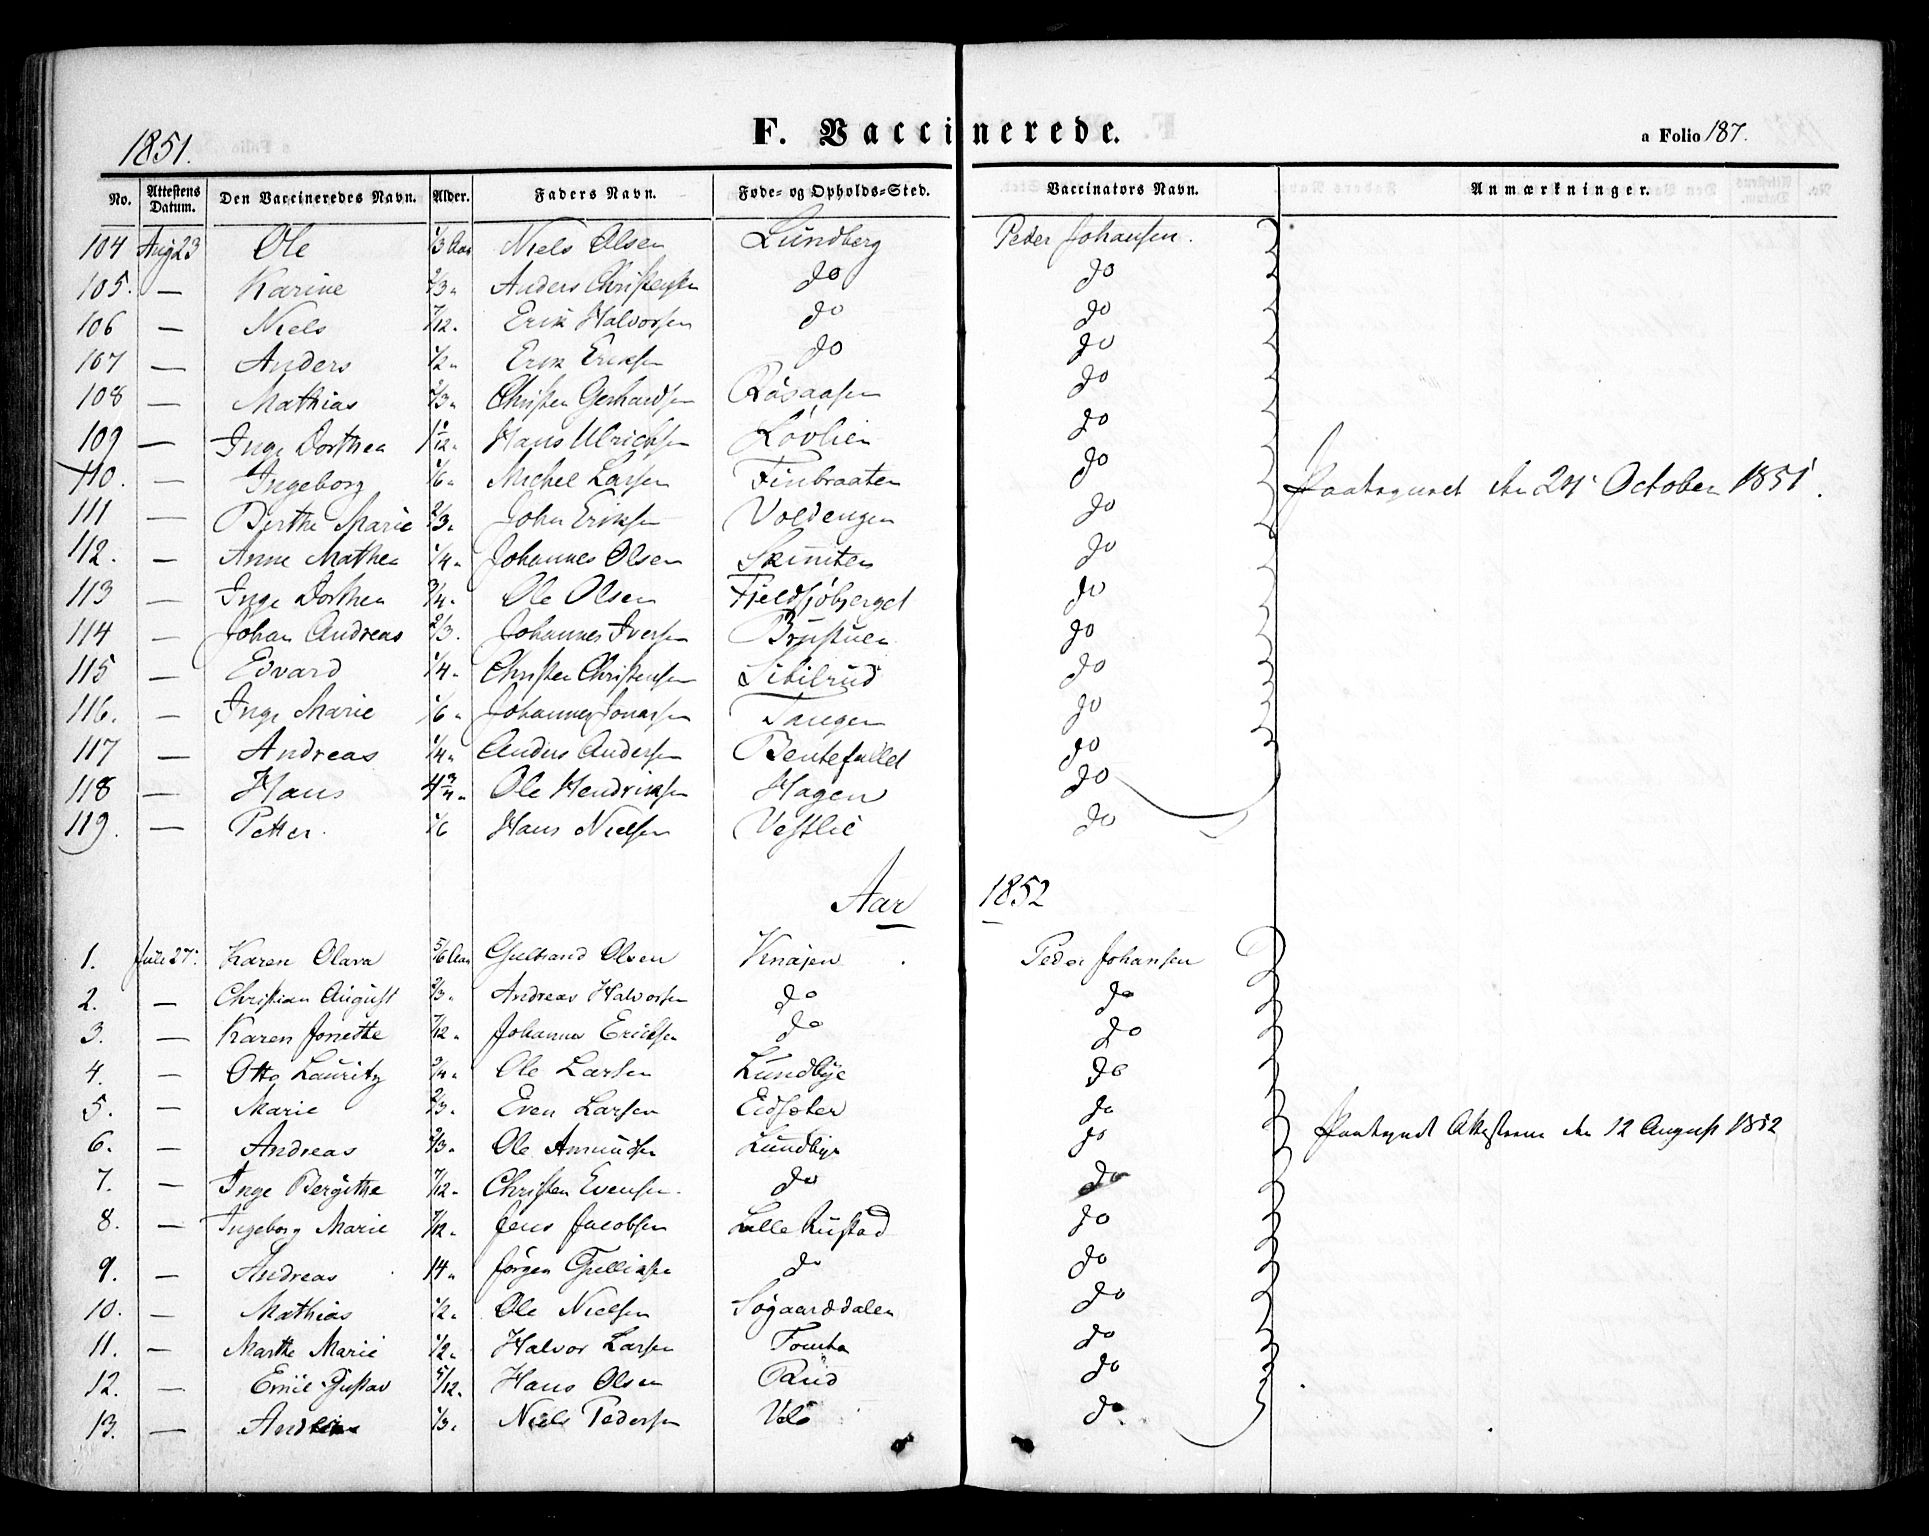 1851.
F. Vaccinerede.
a Folio 187.
No. Attestens Datum. Den Vaccineredes Navn. Alder. Faders Navn. Føde- og Opholds-Sted. Vaccinators Navn. Anmærkninger.
104 Aug 23 Ole 1/3 Aar Niels Olsen Lundberg Peder Johansen.
105. — Karine 2/3 " Anders do do
106 — Niels 7/12 " Erik Halvorsen do do
107 — Anders 1/2 " Erik Eriksen do do
108 — Mathias 2/3 " Christen Gerhardsen Røsaasen do
109 — Inge Dorthea Hans Ulrichsen Løvlien do
110. — Ingeborg 1/6 " Michel Larsen Finbraaten do
111 — Berthe Marie 2/3 " John Eriksen Voldengen do Paategnet den 24 October 1851.
112. — Anne Mathea 1/4 " Johannes Olsen do
113 — Inge Dorthea 3/4 " Ole Olsen Fjeldsjøbjerget do
114 — Johan Andreas 2/3 " Johannes Iversen Brustuen do
115 — Edvard 1/4 " Christen Christensen Sibilrud do
116. — Inge Marie 1/6 " Johannes Jonassen Tangen do
117 — Andreas 1/4 " Anders Andersen do
118 — Hans 4 3/4 " Ole Hendriksen Hagen do
119. — Petter. 1/6 Hans Nielsen Vestlie do
Aar 1852
1. Juli 27. Karen Olava 5/6 Aar Gulbrand Olsen Knajen Peder Johansen
2. — Christian August 2/3 " Andreas Halvorsen do do
3. — Karen Jonette 7/12 " Johannes Ericksen do do
4. — Otto Lauritz 3/4 " Ole Larsen Lundbye do
5. — Marie 2/3 " Even Larsen Eidsæter do
6. — Andreas 2/3 " Ole Amundsen Lundbye do Paategnet Attesterne den 12 August 1852
7. — Inge Bergithe 7/12 " Christen Evensen. do do
8. — Ingeborg Marie 7/12 " Jens Jacobsen Lille Rustad do
9. — Andreas 14 " Jørgen Gulliksen do do
10. — Mathias 1/2 " Ole Nielsen Søgaarddalen do
11. — Marthe Marie 1/2 " Halvor Larsen Tomta do
12. — Emil Gustav 5/12 " Hans Olsen Rud do
13. — 1/3 " Niels Pedersen Velo do